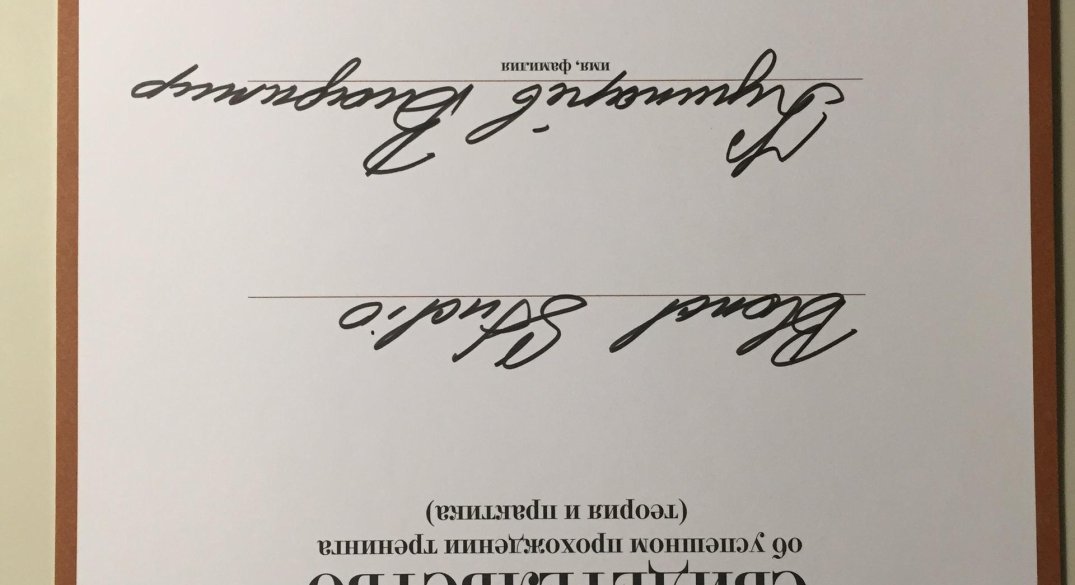 СВИДЕТЕЛЬСТВО
об успешном прохождении тренинга
(теория и практика)
Blond Studio
Владимир
имя, фамилия